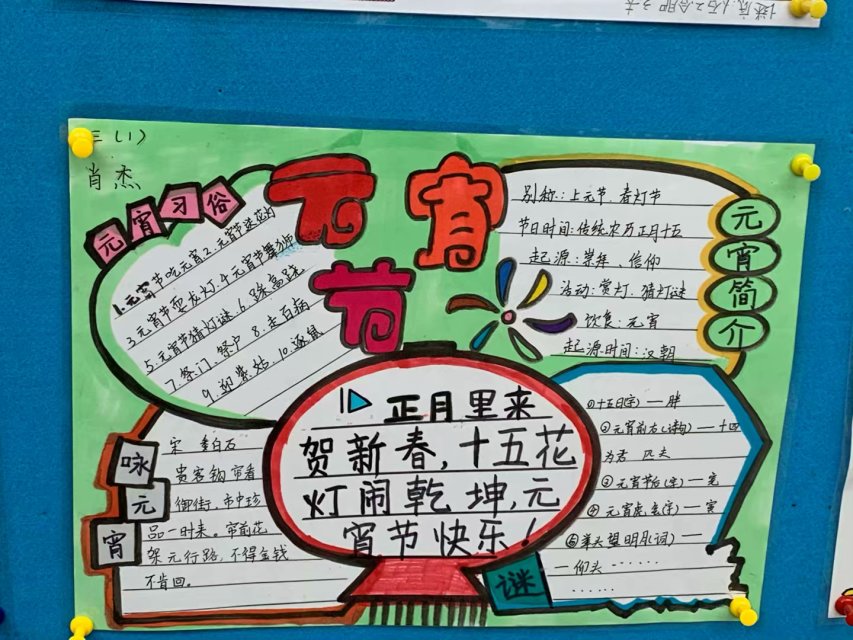 三(1)
肖杰
元宵节
元宵习俗
1.元宵节吃元宵2.元宵节送花灯
3.元宵节耍龙灯.4.元宵节舞狮
5.元宵节猜灯谜.6.踩高跷
7.祭门、祭户 8.走百病
9.迎紫姑 10.逐鼠
元宵简介
别称:上元节、春灯节
节日时间:传统农历正月十五
起源:崇拜、信仰
活动:赏灯、猜灯谜
饮食:元宵
起源时间:汉朝
正月里来
贺新春,十五花
灯闹乾坤,元
宵节快乐!
咏元宵
宋 白石
贵客钩帘看
御街,市中珍
品一时来。帘前花
架元行路,不得金钱
不肯回。
谜
①十五日(字)—胖
②元宵前后(诗句)—十四
为君
③元宵节(字)—完
元宵 (字)—
举头望明月(词)—
—仰头……
……